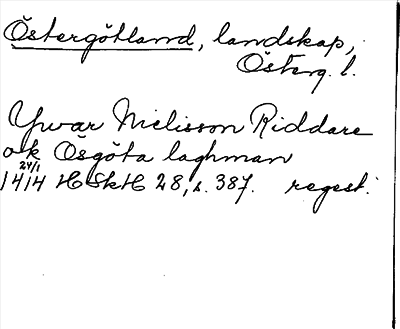 Östergötland, landskap,
Österg. l.
Ywar Nielisson Riddare
ok Ösgöta laghman
24/1
1414 HSkH 28, s. 387. regest.